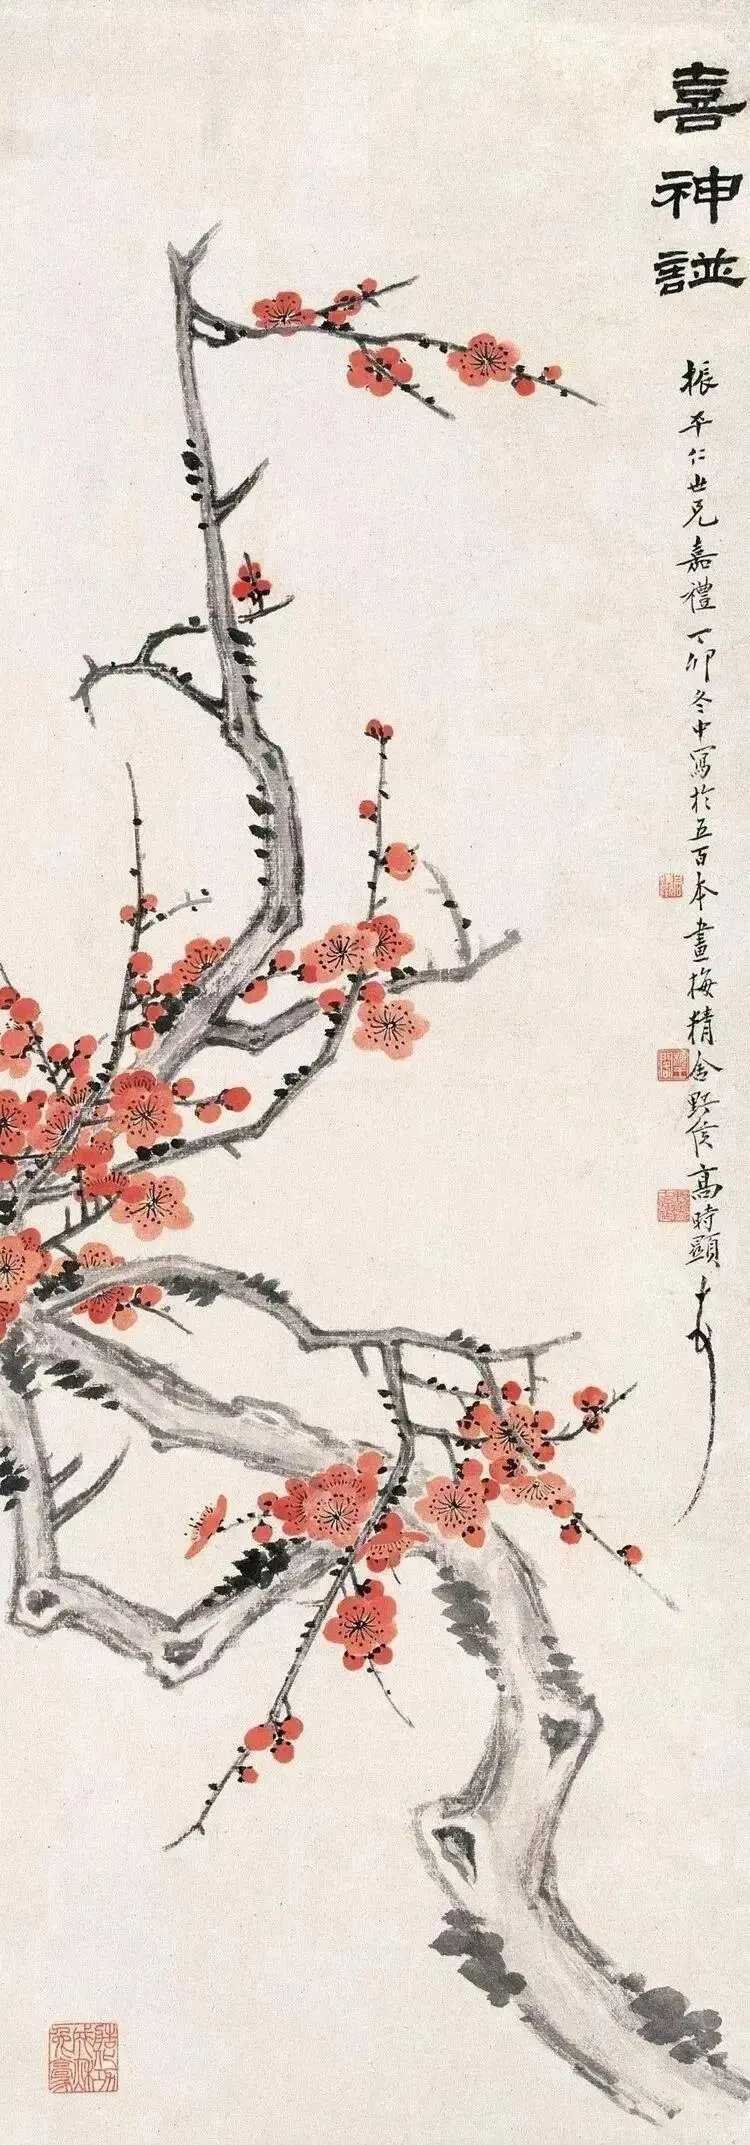 喜神譜
振平仁世兄嘉禮丁卯冬中寫於五百本畫梅精舍野侯高時顯